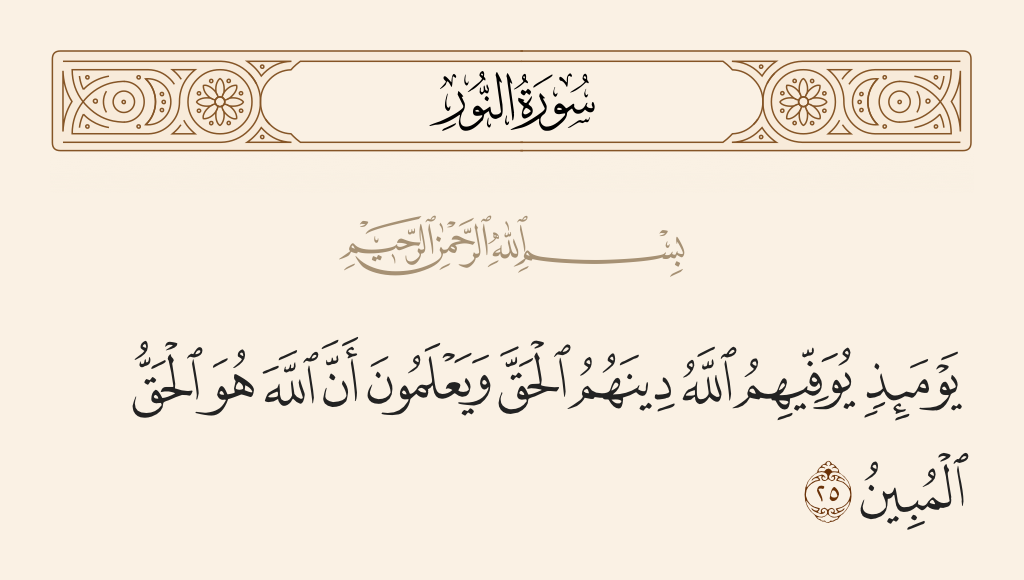 سُورَةُ النُّورِ
بِسْمِ ٱللَّهِ ٱلرَّحْمَٰنِ ٱلرَّحِيمِ
يَوْمَئِذٍ يُوَفِّيهِمُ ٱللَّهُ دِينَهُمُ ٱلْحَقَّ وَيَعْلَمُونَ أَنَّ ٱللَّهَ هُوَ ٱلْحَقُّ
ٱلْمُبِينُ ٢٥